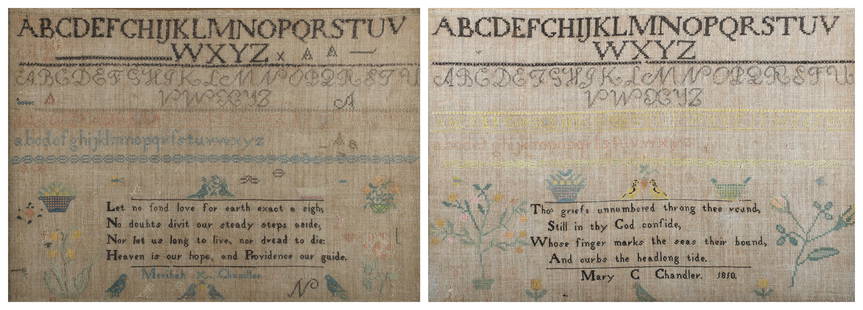 ABCDEFGHIJKLMNOPQRSTUV
WXYZ
ABCDEFGHIKLMNOPQRSTU
VWXYZ
abcdefghijklmnopqrſstuvwxyz
Let no fond love for earth exact a sigh,
No doubts divit our steady steps aside,
Nor let us long to live, nor dread to die:
Heaven is our hope, and Providence our guide.
Meribah Chandler
ABCDEFGHIJKLMNOPQRSTUV
WXYZ
ABCDEFGHIKLMNOPQRSTU
VWXYZ
Tho griefs unnumbered throng thee round,
Still in thy God confide,
Whose finger marks the seas their bound,
And curbs the headlong tide.
Mary C Chandler. 1810.